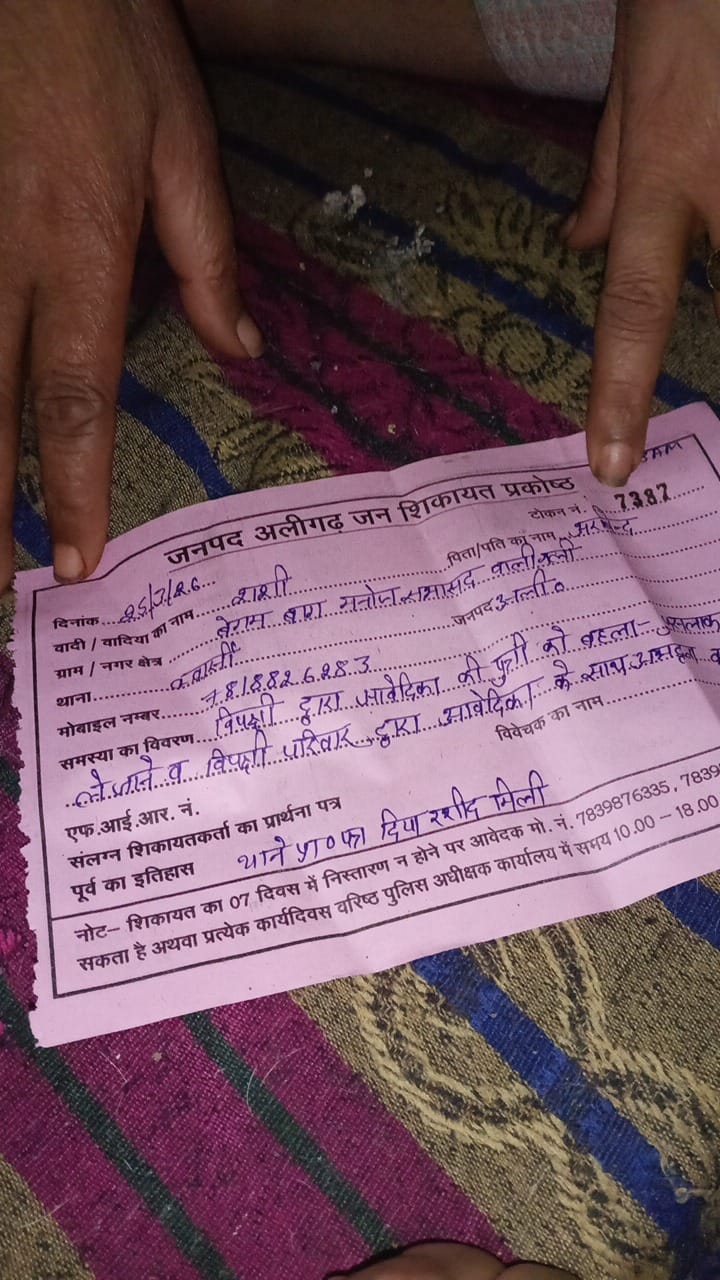 जनपद अलीगढ़ जन शिकायत प्रकोष्ठ
टोकन नं. 7387
दिनांक 25/3/26
वादी / वादिया का नाम शशी पिता/पति का नाम
ग्राम / नगर क्षेत्र बेगम बाग मनोज सभासद वाली गली
थाना क्वार्सी जनपद अली०
मोबाइल नम्बर 7818826283
समस्या का विवरण विपक्षी द्वारा आवेदिका की पुत्री को बहला-फुसलाक
ले जाने व विपक्षी परिवार द्वारा आवेदिका के साथ
एफ.आई.आर. नं. विवेचक का नाम
संलग्न शिकायतकर्ता का प्रार्थना पत्र
पूर्व का इतिहास थाने प्रा० पत्र दिया रसीद मिली
नोट– शिकायत का 07 दिवस में निस्तारण न होने पर आवेदक मो. नं. 7839876335, 7839
सकता है अथवा प्रत्येक कार्यदिवस वरिष्ठ पुलिस अधीक्षक कार्यालय में समय 10.00 – 18.00